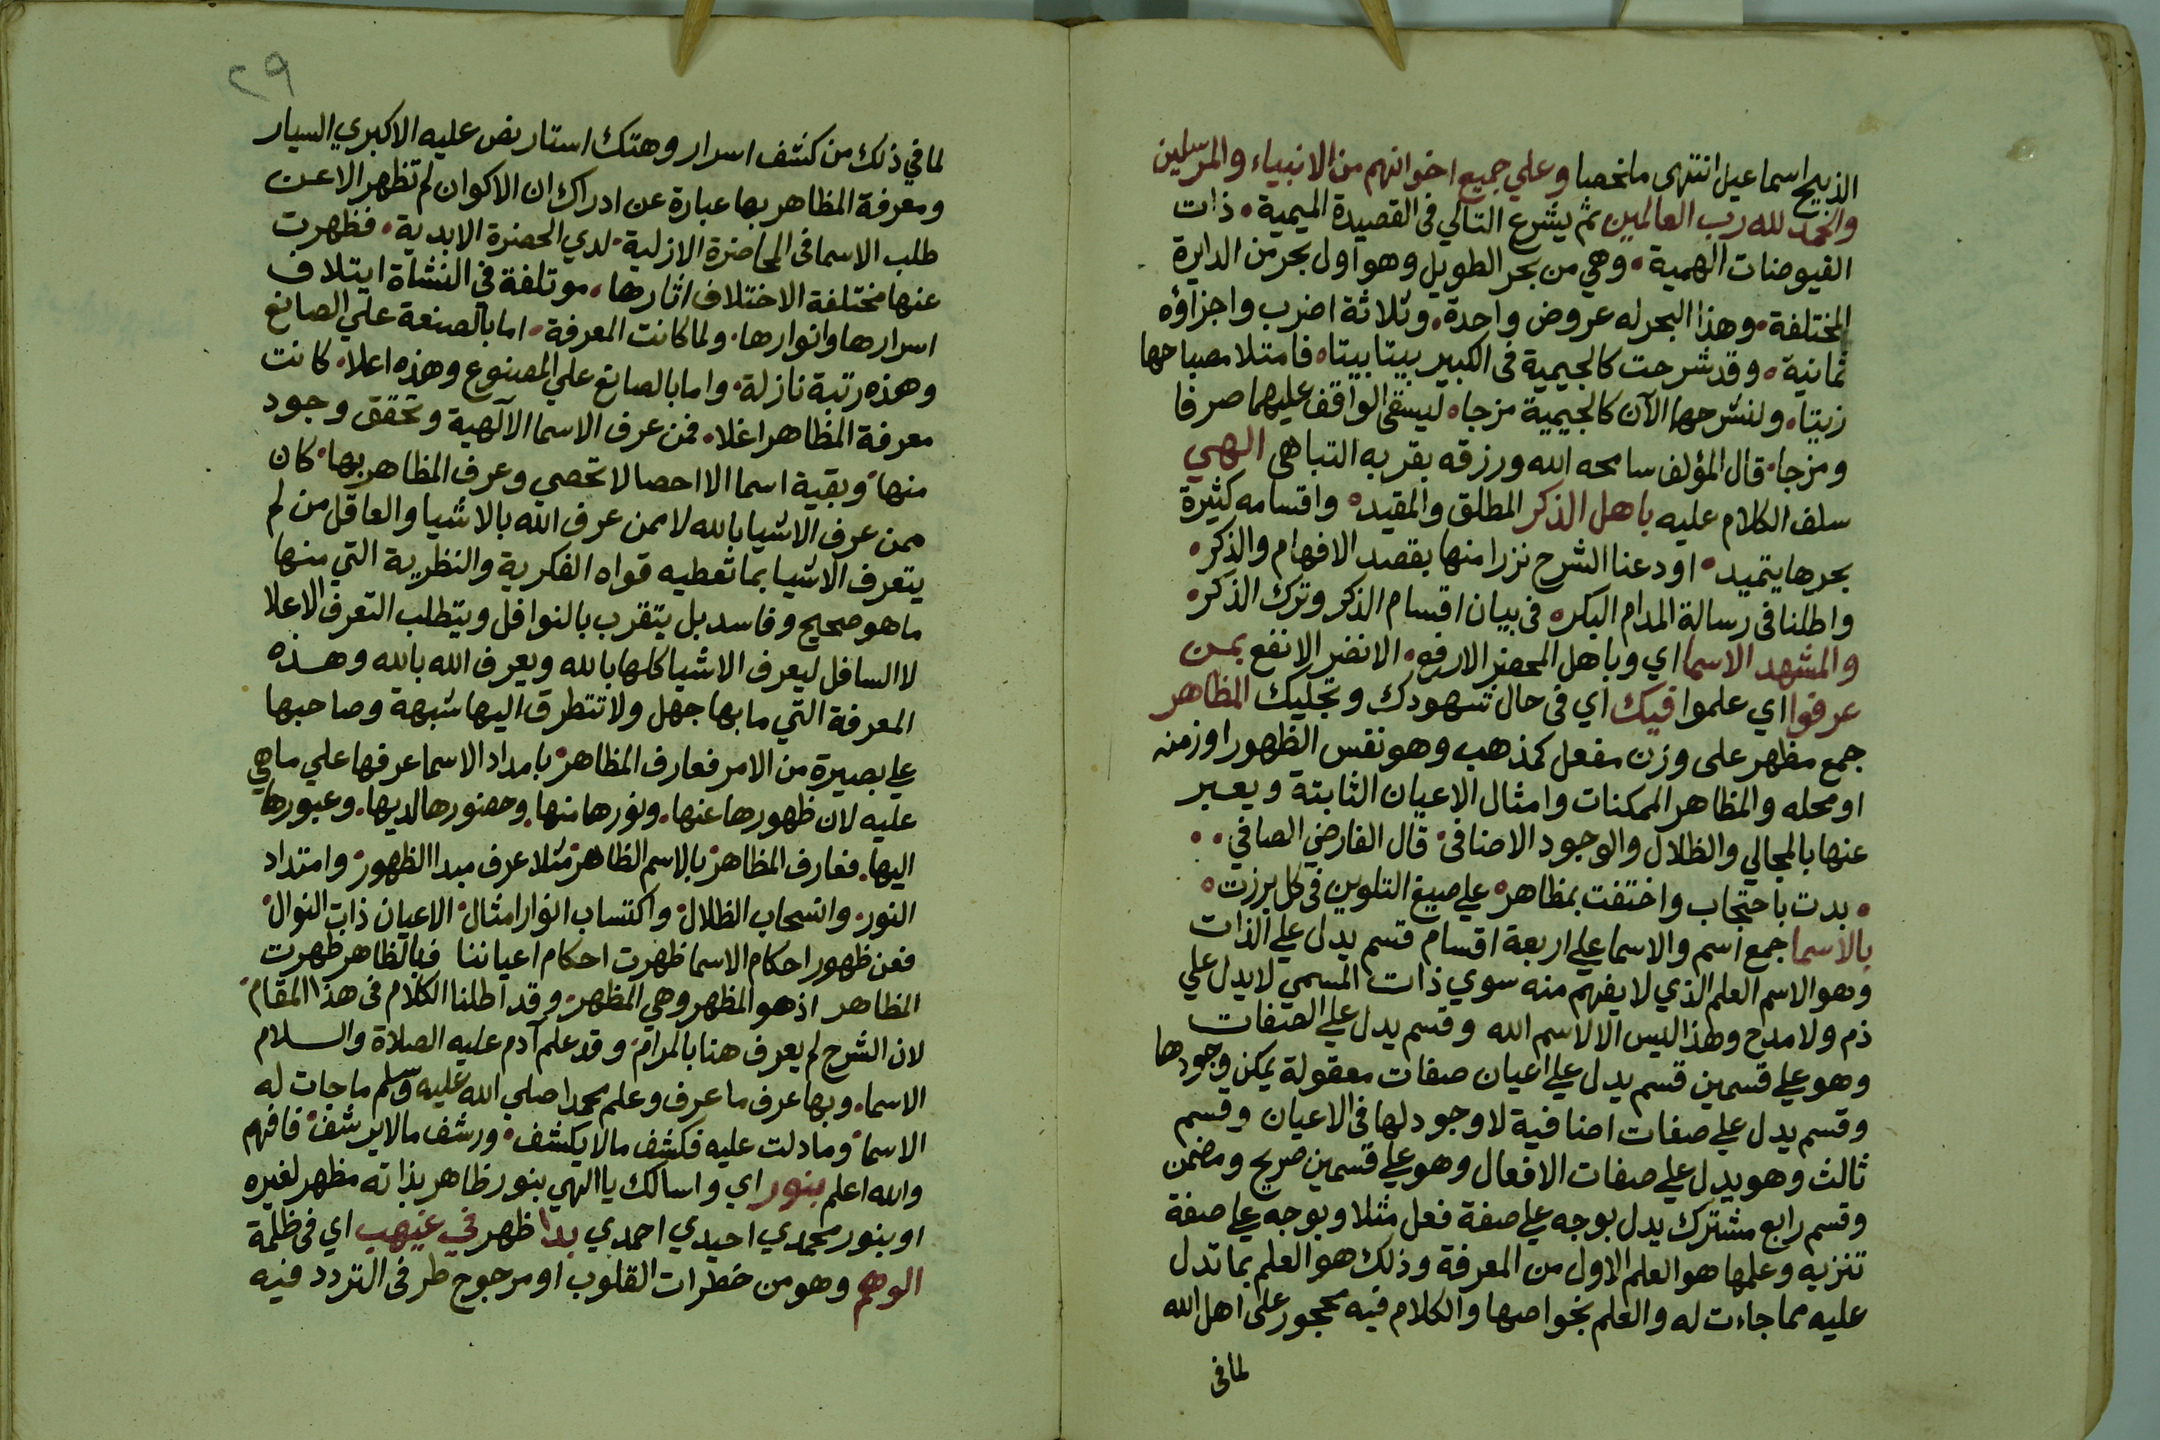 الذبيح اسماعيل انتهى ملخصا وعلي جميع اخوانهم من الانبياء والمرسلين
والحمد لله رب العالمين ثم يشرع التالي في القصيدة الميمية ٠ ذات
الفيوضات الهمية ٠ وهي من بحر الطويل وهو اول بحر من الدايرة
المختلفة ٠ وهذا البحر له عروض واحدة ٠ وثلاثة اضرب واجزاؤه
ثمانية ٠ وقد شرحت كالجيمية في الكبير بيتا بيتا ٠ فامتلا مصباحها
زيتا ٠ ولنشرحها الآن كالجيمية مزجا ٠ ليسقى الواقف عليهما صرفا
ومزجا ٠ قال المؤلف سامحه الله ورزقه بقربه التباهى الهي
سلف الكلام عليه باهل الذكر المطلق والمقيد ٠ واقسامه كثيرة
بحرها يتميد ٠ اودعنا الشرح نزرا منها بقصد الافهام والذكر ٠
واطلنا في رسالة المدام البكر ٠ في بيان اقسام الذكر وترك الذكر ٠
والمشهد الاسما اي وباهل المحضر الارفع ٠ الانضر الانفع بمن
عرفوا اي علموا فيك اي في حال شهودك وتجليك المظاهر
جمع مظهر على وزن مفعل كمذهب وهو نفس الظهور او زمنه
او محله والمظاهر الممكنات وامثال الاعيان الثابتة ويعبر
عنها بالمجالي والظلال والوجود الاضافي ٠ قال الفارضي الصافي ٠٠
٠ بدت باحتجاب واختفت بمظاهر ٠ علي صبغ التلوين في كل برزت ٠
بالاسما جمع اسم والاسما علي اربعة اقسام قسم يدل علي الذات
وهو الاسم العلم الذي لا يفهم منه سوي ذات المسمي لا يدل علي
ذم ولا مدح وهذا ليس الا لاسم الله وقسم يدل علي الصفات
وهو علي قسمين قسم يدل علي اعيان صفات معقولة يمكن وجودها
وقسم يدل علي صفات اضافية لا وجود لها في الاعيان وقسم
ثالث وهو يدل علي صفات الافعال وهو علي قسمين صريح ومضمن
وقسم رابع مشترك يدل بوجه علي صفة فعل مثلا وبوجه علي صفة
تنزيه وعلمها هو العلم الاول من المعرفة وذلك هو العلم بما تدل
عليه مما جاءت له والعلم بخواصها والكلام فيه محجور على اهل الله
لما في
٢٩
لما في ذلك من كشف اسرار وهتك استار نص عليه الاكبري السيار
ومعرفة المظاهر بها عبارة عن ادراك ان الاكوان لم تظهر الا عن
طلب الاسما في المحاضرة الازلية ٠ لدي الحضرة الابدية ٠ فظهرت
عنها مختلفة الاختلاف اثارها ٠ موتلفة في النشاة ايتلاف
اسرارها وانوارها ٠ ولما كانت المعرفة ٠ اما بالصنعة علي الصانع
وهذه رتبة نازلة ٠ واما بالصانع علي المصنوع وهذه اعلا ٠ كانت
معرفة المظاهر اغلا ٠ فمن عرف الاسما الآلهية وتحقق وجود
منها ٠ وبقية اسما الا احصا لا تحصي وعرف المظاهر بها ٠ كان
ممن عرف الاشيا بالله لا ممن عرف الله بالاشيا والعاقل من لم
يتعرف الاشيا بما تعطيه قواه الفكرية والنظرية التي منها
ما هو صحيح وفاسد بل يتقرب بالنوافل ويتطلب التعرف الاعلا
لا السافل ليعرف الاشيا كلها بالله ويعرف الله بالله وهذه
المعرفة التي ما بها جهل ولا تتطرق اليها شبهة وصاحبها
علي بصيرة من الامر فعارف المظاهر ٠ بامداد الاسما عرفها علي ما هي
عليه لان ظهورها عنها ٠ ونورها منها ٠ وحضورها لديها ٠ وعبورها
اليها ٠ فعارف المظاهر ٠ بالاسم الظاهر مثلا عرف مبدا الظهور ٠ وامتداد
النور ٠ وانسحاب الظلال ٠ واكتساب انوار امثال ٠ الاعيان ذات النوال ٠
فعن ظهور احكام الاسما ظهرت احكام اعياننا فبالظاهر ظهرت
المظاهر اذ هو المظهر وهي المظهر ٠ وقد اطلنا الكلام في هذا المقام ٠
لان الشرح لم يعرف هنا بالمرام ٠ وقد علم آدم عليه الصلاة والسلام
الاسما ٠ وبها عرف ما عرف وعلم محمدا صلي الله عليه وسلم ما جات له
الاسما ٠ وما دلت عليه فكشف ما لا يكشف ٠ ورشف ما لا يرشف ٠ فافهم
والله اعلم بنور اي واسالك يا الهي بنور ظاهر بذاته مظهر لغيره
او بنور محمدي احيدي احمدي بدا ظهر في غيهب اي في ظلمة
الوهم وهو من خطرات القلوب او مرجوح طرفي التردد فيه